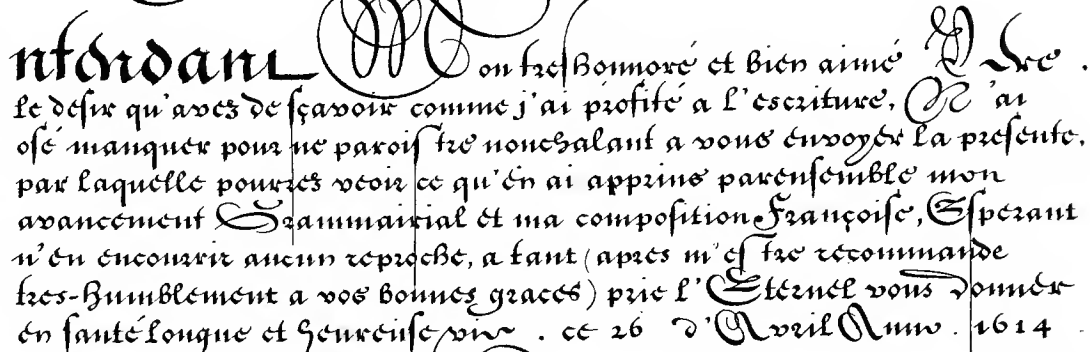 ntendant Mon treshonnoré et bien aimé Pere.
le desir qu'avez de sçavoir comme j'ai profité a l'escriture, N'ai
osé manquer pour ne paroistre nonchalant a vous envoyer la presente,
par laquelle pourrez veoir ce qu'en ai apprins parensemble mon
avancement Grammairial et ma composition Françoise, Esperant
n'en encourir aucun reproche, a tant (apres m'estre recommande
tres-humblement a vos bonnes graces) prie l'Eternel vous donner
en santé longue et heureuse vie. ce 26 d'Avril Anno. 1614.